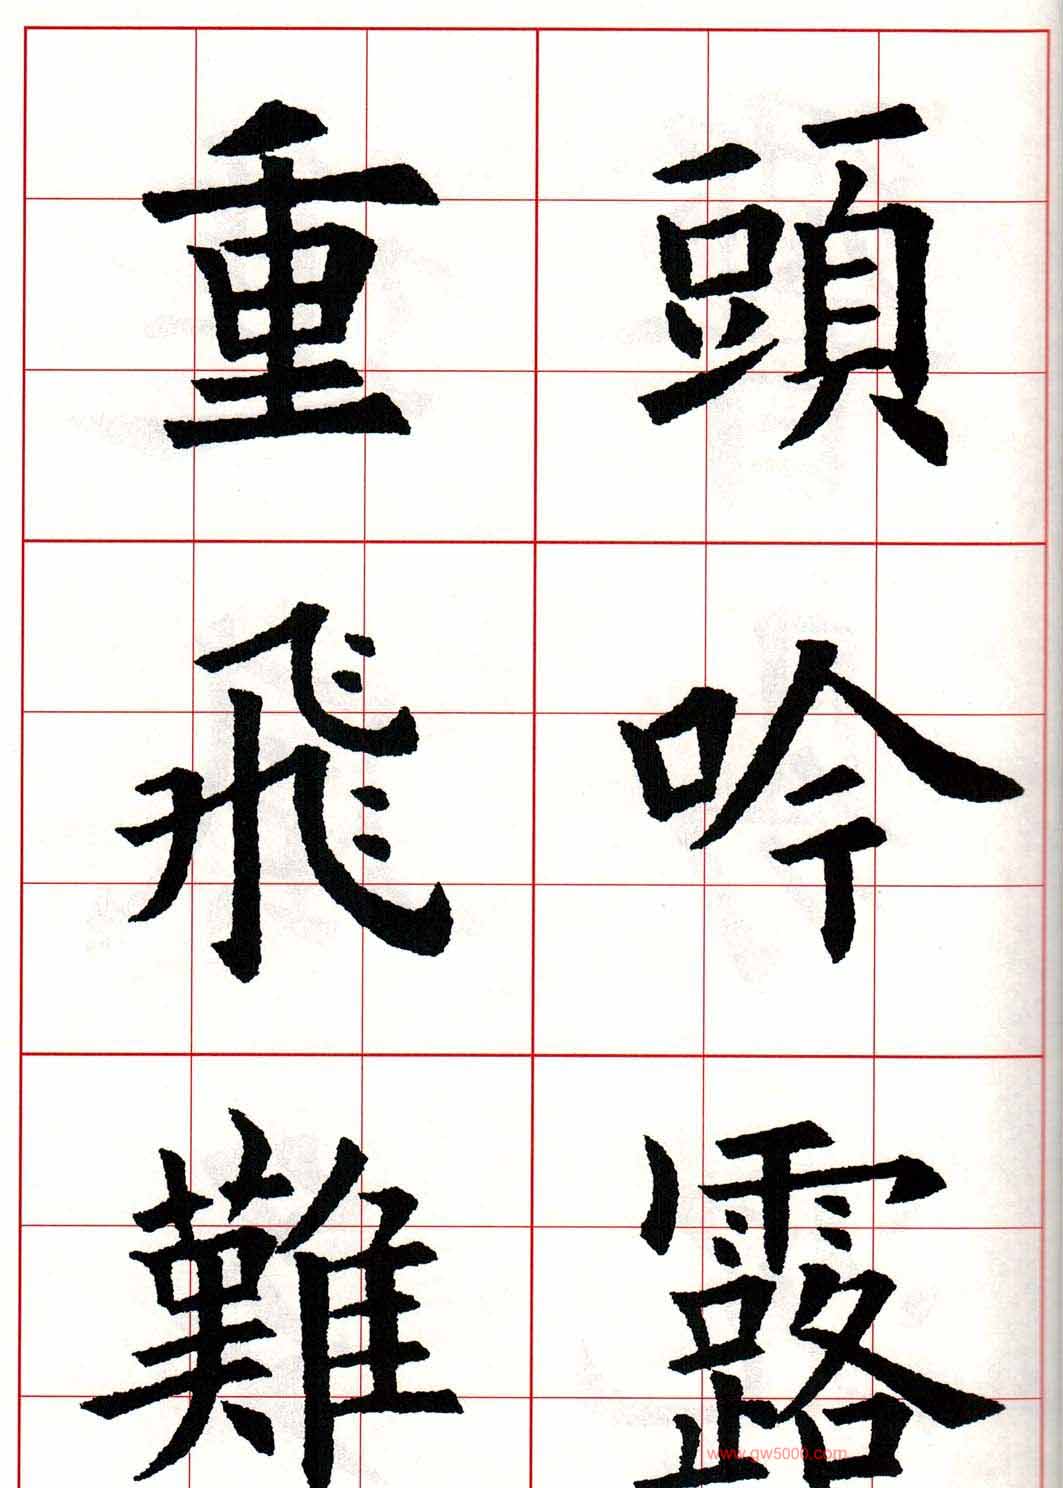 頭吟露
重飛難
www.qw5000.com